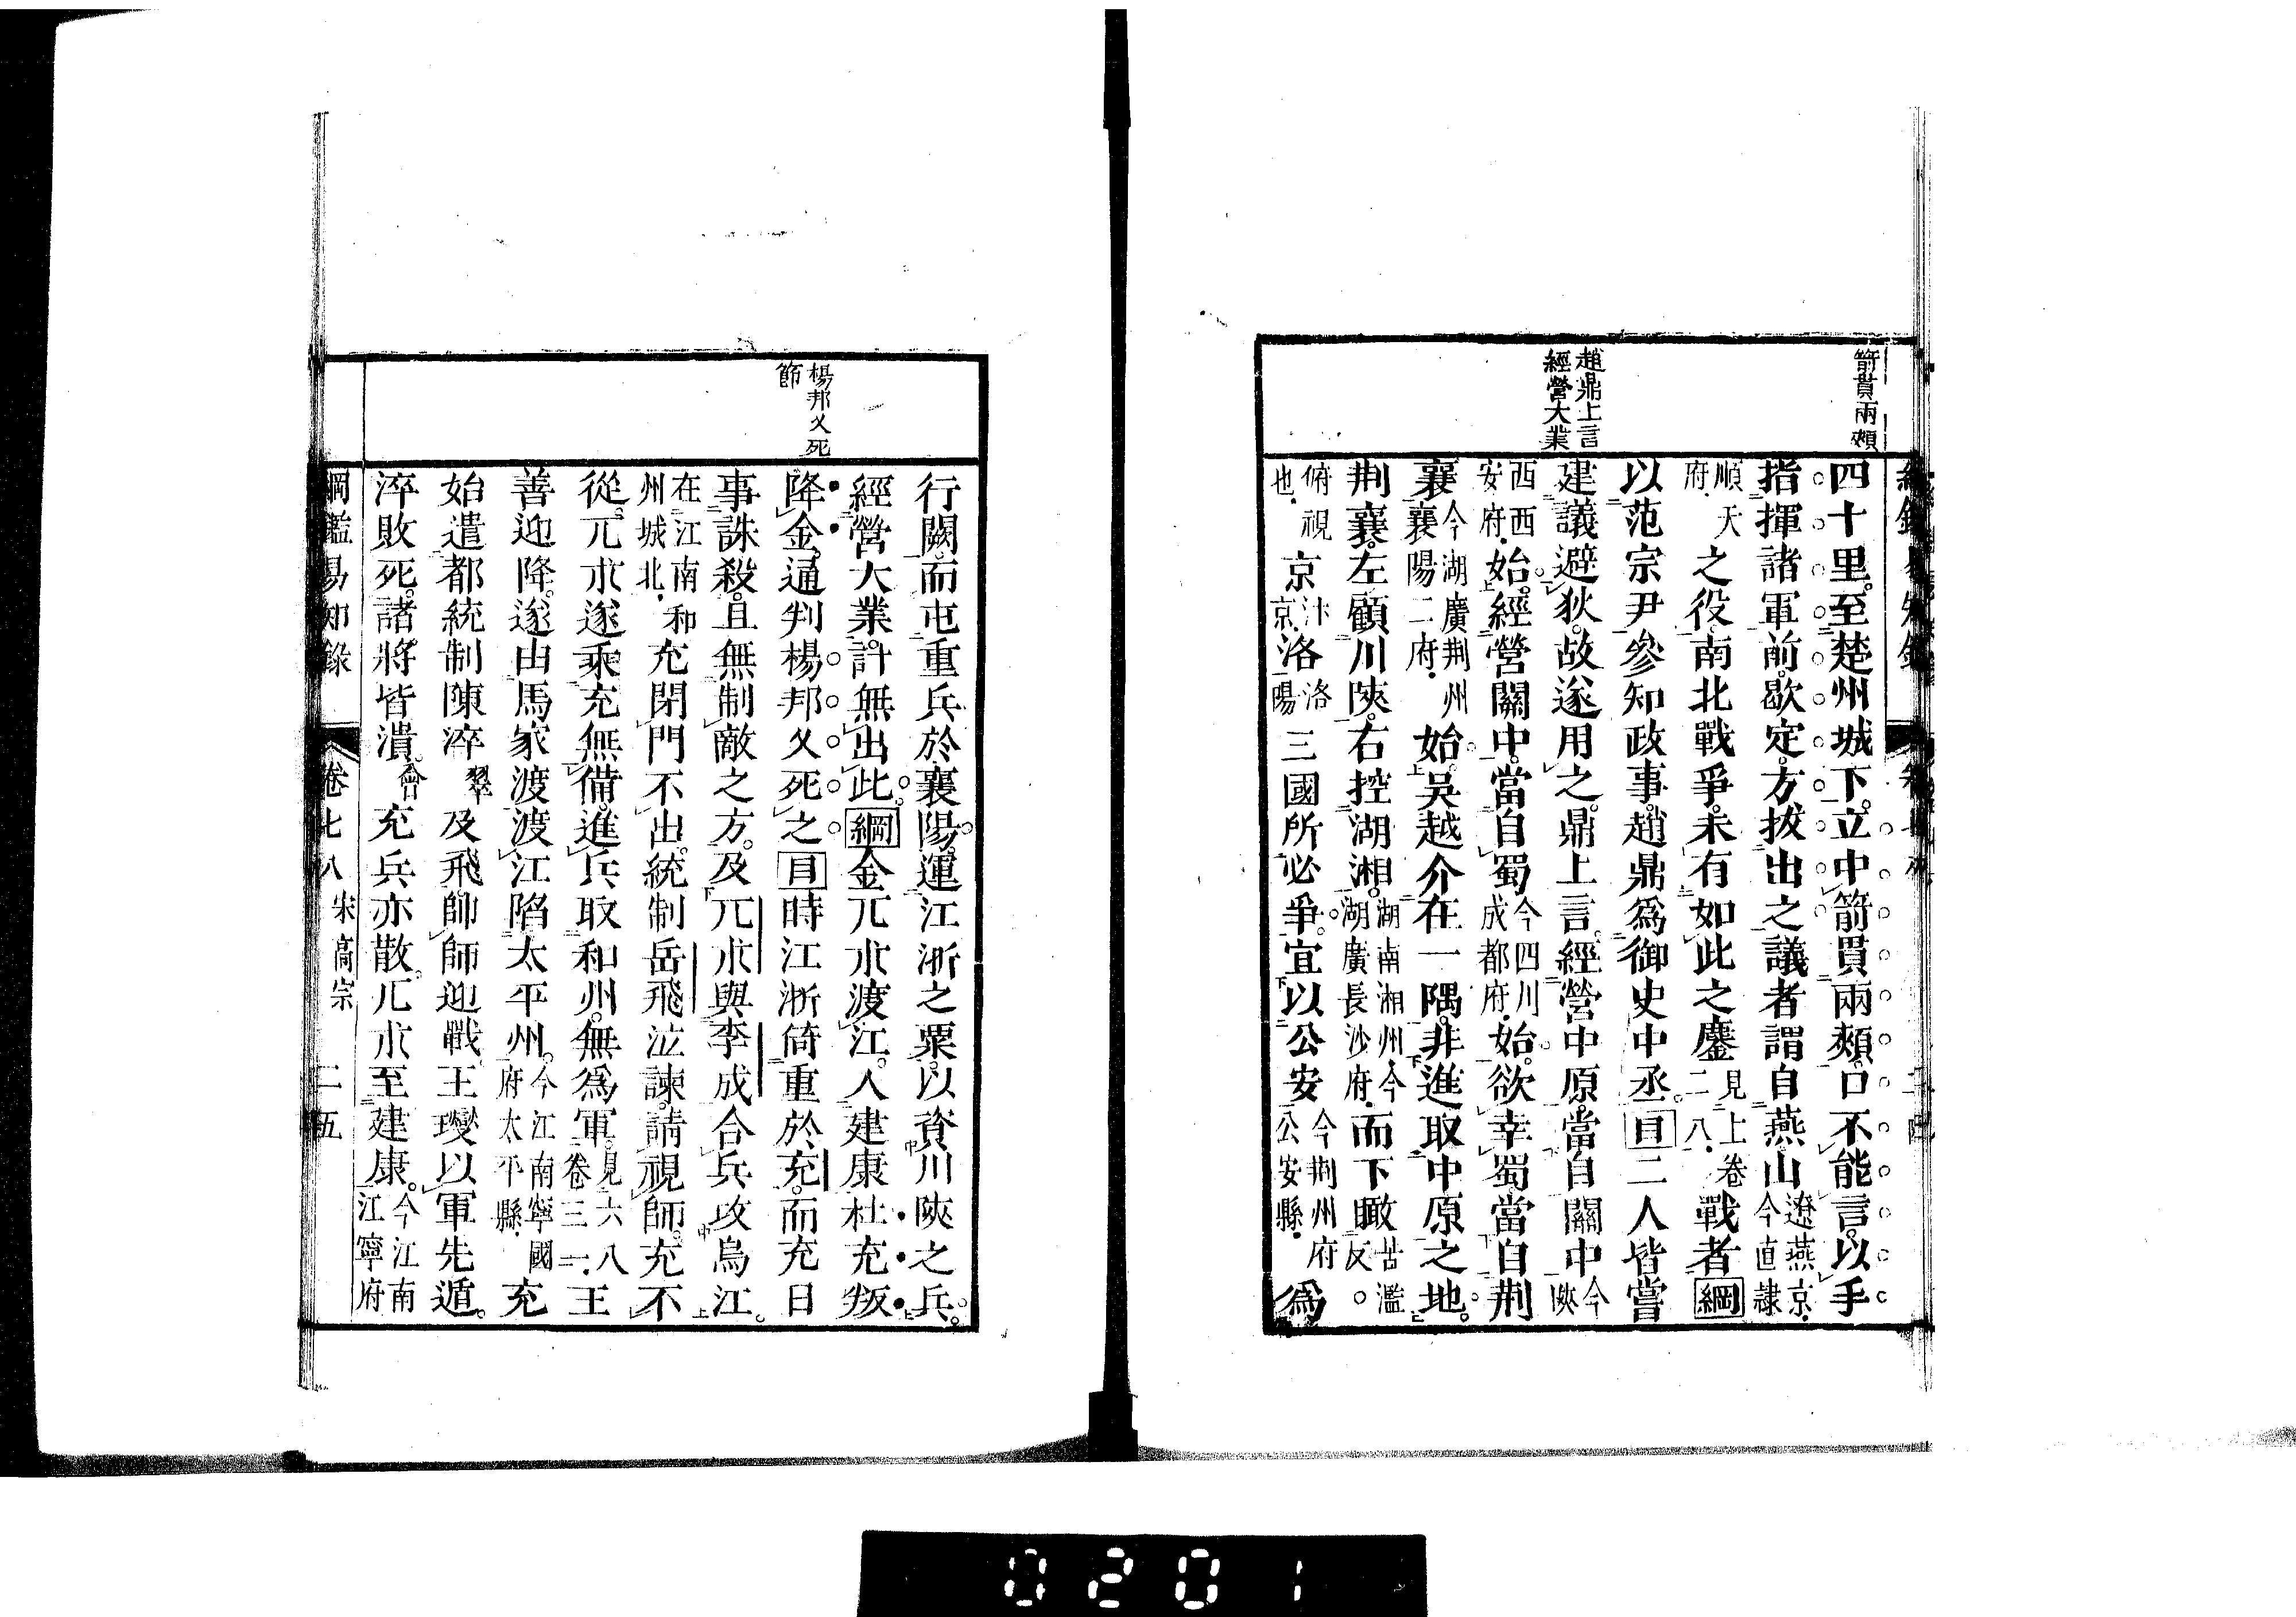 箭貫兩頰
趙鼎上言
經營大業
四十里至楚州城下立中箭貫兩頰口不能言以手
指揮諸軍前。歇定。方拔出之議者謂自燕山遼燕京今直隷
順天府之役。南北戰爭。未有如此之鏖見上卷二八戰者綱
以范宗尹參知政事。趙鼎爲御史中丞。目二人皆嘗
建議避狄。故遂用之。鼎上言。經營中原。當自關中今陝
西西安府始。經營關中。當自蜀今四川成都府始。欲幸蜀。當自荆
襄今湖廣荆州襄陽二府始。吳越介在一隅。非進取中原之地。
荆襄。左顧川陝。右控湖湘。湖南湘州今湖廣長沙府而下瞰苦濫反。
俯視也京汴京洛洛陽三國所必爭。宜以公安今荆州府公安縣爲
楊邦乂死
節
行闕。而屯重兵於襄陽。運江浙之粟。以資川陝之兵。
經營大業。計無出此。綱金兀朮渡江。入建康杜充叛
降金。通判楊邦乂死之目時江浙倚重於充。而充日
事誅殺。且無制敵之方。及兀朮與李成合兵攻烏江。
在江南和州城北充閉門不出。統制岳飛泣諫。請視師。充不
從。兀朮遂乘充無備。進兵取和州。無爲軍。見六八卷三一王
善迎降。遂由馬家渡渡江陷太平州。今江南寧國府太平縣充
始遣都統制陳淬翠及飛帥師迎戰。王𤫉以軍先遁。
淬敗死。諸將皆潰。會充兵亦散。兀朮至建康。今江南江寧府
綱鑑易知錄 卷七八 宋高宗 二五
0201